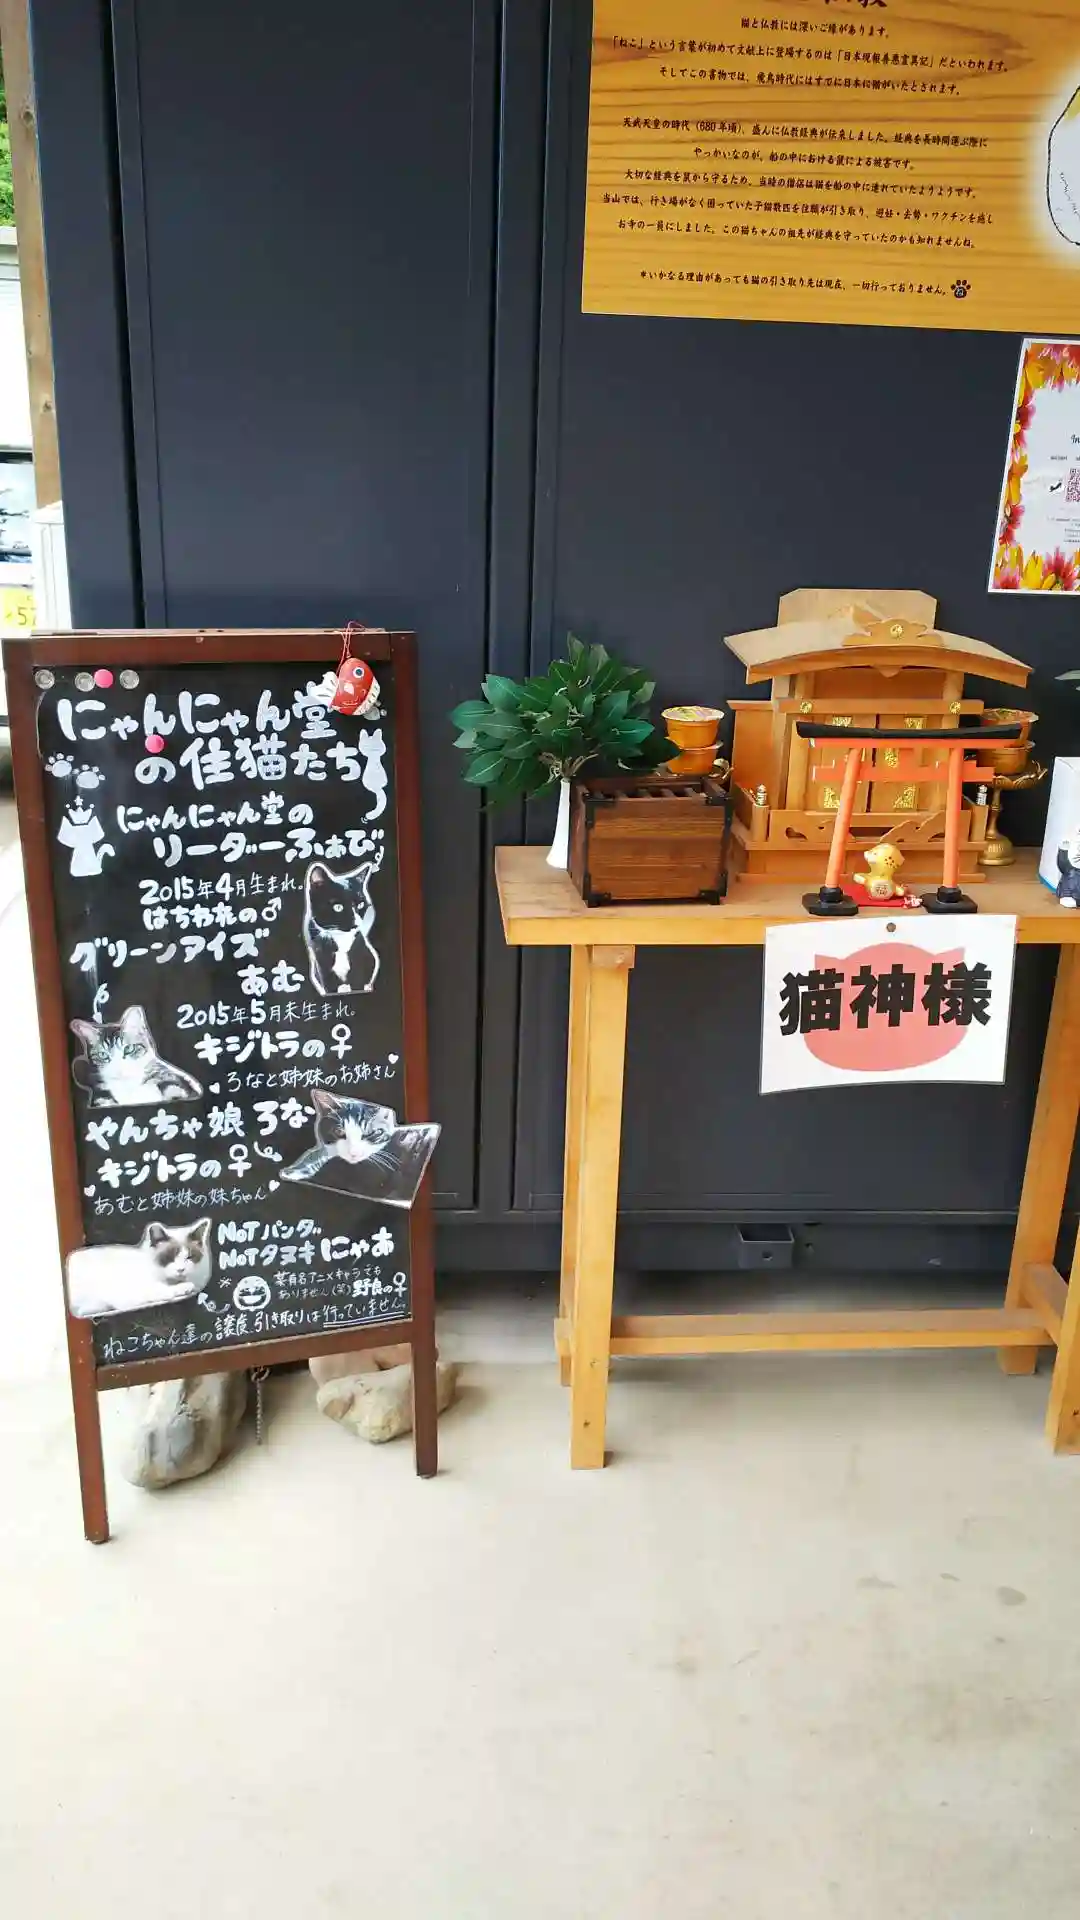 猫と仏教には深いご縁があります。
「ねこ」という言葉が初めて文献上に登場するのは「日本現報善悪霊異記」だといわれます。
そしてこの書物では、飛鳥時代にはすでに日本に猫がいたとされます。
天武天皇の時代（680年頃）、盛んに仏教経典が伝来しました。経典を長時間運ぶ際に
やっかいなのが、船の中における鼠による被害です。
大切な経典を鼠から守るため、当時の僧侶は猫を船の中に連れていたようようです。
当山では、行き場がなく困っていた子猫数匹を住職が引き取り、避妊・去勢・ワクチンを施し
お寺の一員にしました。この猫ちゃんの祖先が経典を守っていたのかも知れませんね。
＊いかなる理由があっても猫の引き取り先は現在、一切行っておりません。
にゃんにゃん堂
の住猫たち
にゃんにゃん堂の
リーダーふぁび
2015年4月生まれ。
はちわれの♂
グリーンアイズ
あむ
2015年5月末生まれ。
キジトラの♀
ろなと姉妹のお姉さん
やんちゃ娘 ろな
キジトラの♀
あむと姉妹の妹ちゃん
NOTパンダ
NOTタヌキ にゃあ
※某有名アニメキャラでも
ありません(笑) 野良の♀
ねこちゃん達の譲渡、引き取りは行っていません。
猫神様
福
57